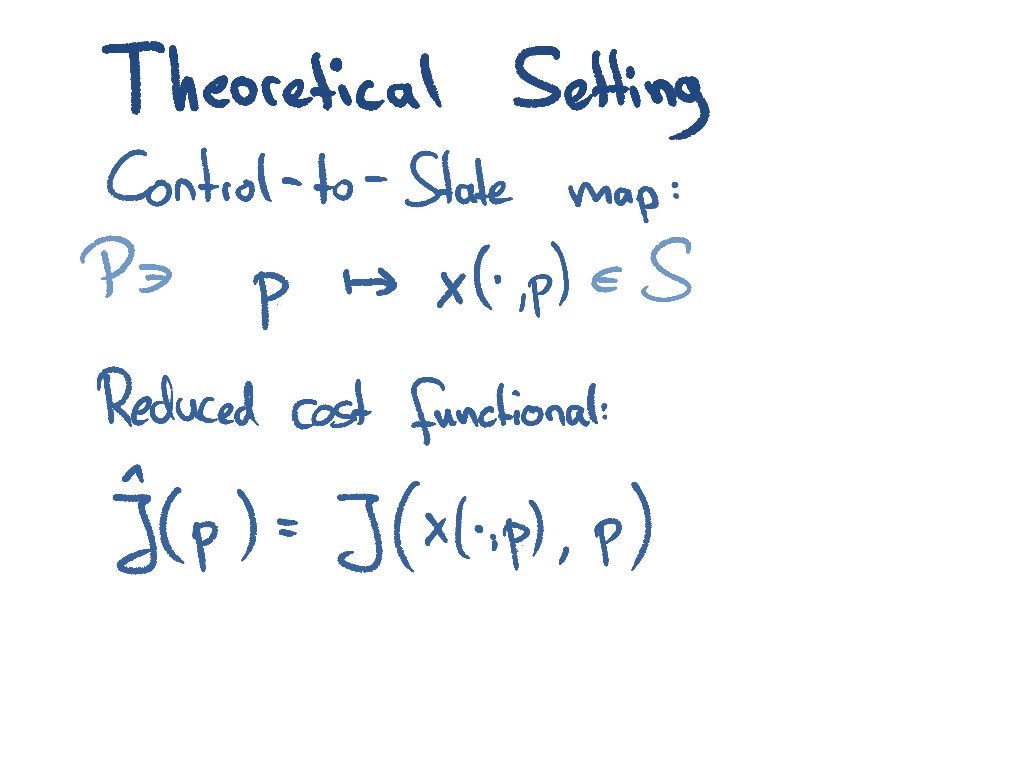 Theoretical Setting
Control-to-State map:
P∋ p ↦ x(·,p) ∈ S
Reduced cost functional:
Ĵ(p) = J(x(·;p), p)